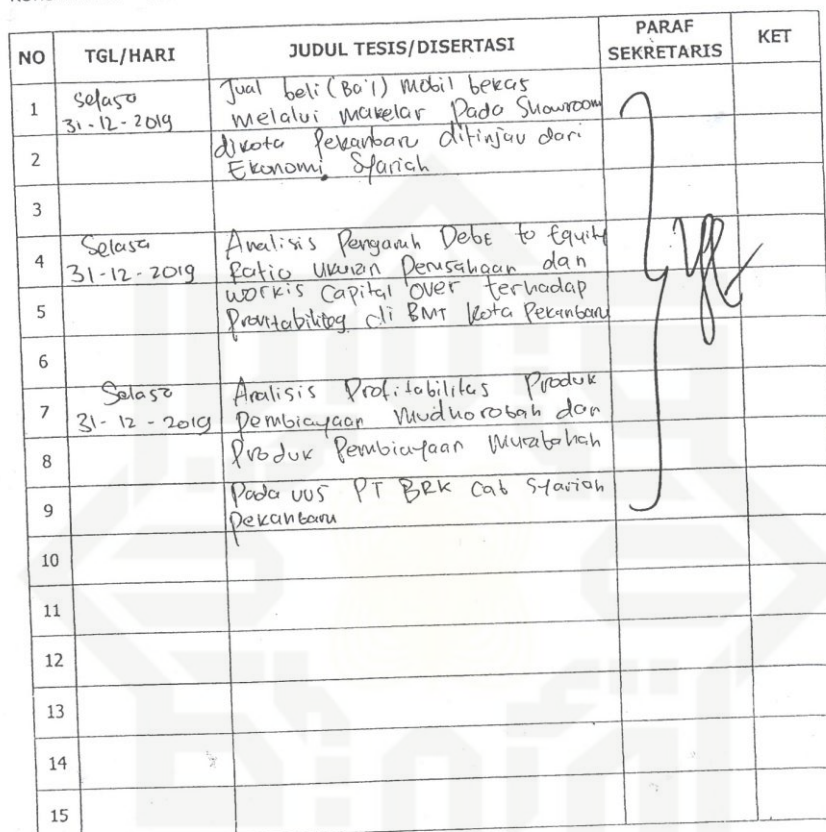 NO TGL/HARI JUDUL TESIS/DISERTASI PARAF SEKRETARIS KET
1 Selasa Jual beli (Ba'i) mobil bekas
31-12-2019 melalui makelar Pada Showroom
2 dikota Pekanbaru ditinjau dari
Ekonomi Syariah
3
4 Selasa Analisis Pengaruh Debt to Equity
31-12-2019 Ratio Ukuran Perusahaan dan
5 workis Capital over terhadap
Provitabilitas di BMT Kota Pekanbaru
6
7 Selasa Analisis Profitabilitas Produk
31-12-2019 Pembiayaan Mudhorobah dan
8 Produk Pembiayaan Murabahah
9 Pada UUS PT BRK Cab Syariah
Pekanbaru
10
11
12
13
14
15